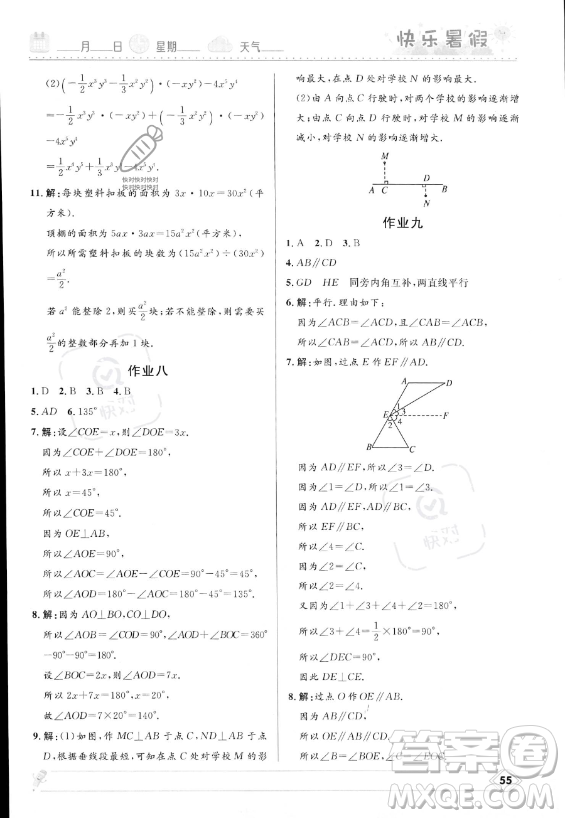 月 日 星期 天气 快乐暑假
(2)(-1/2x³y³-1/3x³y²)·(-xy²)=-1/2x³y³·
(-xy²)+(-1/3x³y²)·(-xy²)
=1/2x⁴y⁵+1/3x⁴y⁴.
快对快对快对
快对快对快对
11.解:每块塑料扣板的面积为3x·10x=30x²(平
方米).
顶棚的面积为5ax·3ax=15a²x²(平方米).
所以所需塑料扣板的块数为(15a²x²)÷(30x²)
=a²/2.
若a²能整除2,则需买a²/2块;若不能整除,则需买
a²/2的整数部分再加1块.
作业八
1.D 2.B 3.B 4.B
5.AD 6.135°
7.解:设∠COE=x,则∠DOE=3x.
因为∠COE+∠DOE=180°,
所以x+3x=180°.
所以x=45°.
所以∠COE=45°.
因为OE⊥AB,
所以∠AOE=90°.
所以∠AOC=∠AOE-∠COE=90°-45°=45°.
所以∠AOD=180°-∠AOC=180°-45°=135°.
8.解:因为AO⊥BO,CO⊥DO,
所以∠AOB=∠COD=90°,∠AOD+∠BOC=
360°-90°-90°=180°.
设∠BOC=2x,则∠AOD=7x.
所以2x+7x=180°,解得x=20°.
所以∠AOD=7×20°=140°.
9.解:(1)作MC⊥AB于点C,ND⊥AB于点D,
根据垂线段最短,可知在点C处对学校M的影
响最大,在点D处对学校N的影响最大.
(2)由A向点C行驶时,对两个学校的影响逐渐增
大;由点C向点D行驶时,对学校M的影响逐渐
减小,对学校N的影响逐渐增大.
M
A C B
N
作业九
1.A 2.D 3.B
4.AB∥CD
5.GD HE 同旁内角互补,两直线平行
6.解:平行.理由如下:
因为∠ACB=∠ACD,∠CAB=∠ACB,
所以∠CAB=∠ACD.
所以AB∥CD.
7.解:如图,过点E作EF∥AD.
A D
1
E 3 F
2 4
B C
因为AD∥EF,所以∠3=∠D.
因为∠1=∠D,所以∠1=∠3.
因为AD∥BC,AD∥EF,
所以EF∥BC.
所以∠4=∠C.
因为∠2=∠C,
所以∠2=∠4.
又因为∠1+∠2+∠3+∠4=180°,
所以∠3+∠4=1/2×180°=90°.
因此DE⊥CE.
8.解:过点O作OE∥AB.
因为AB∥CD,
所以OE∥CD.
55